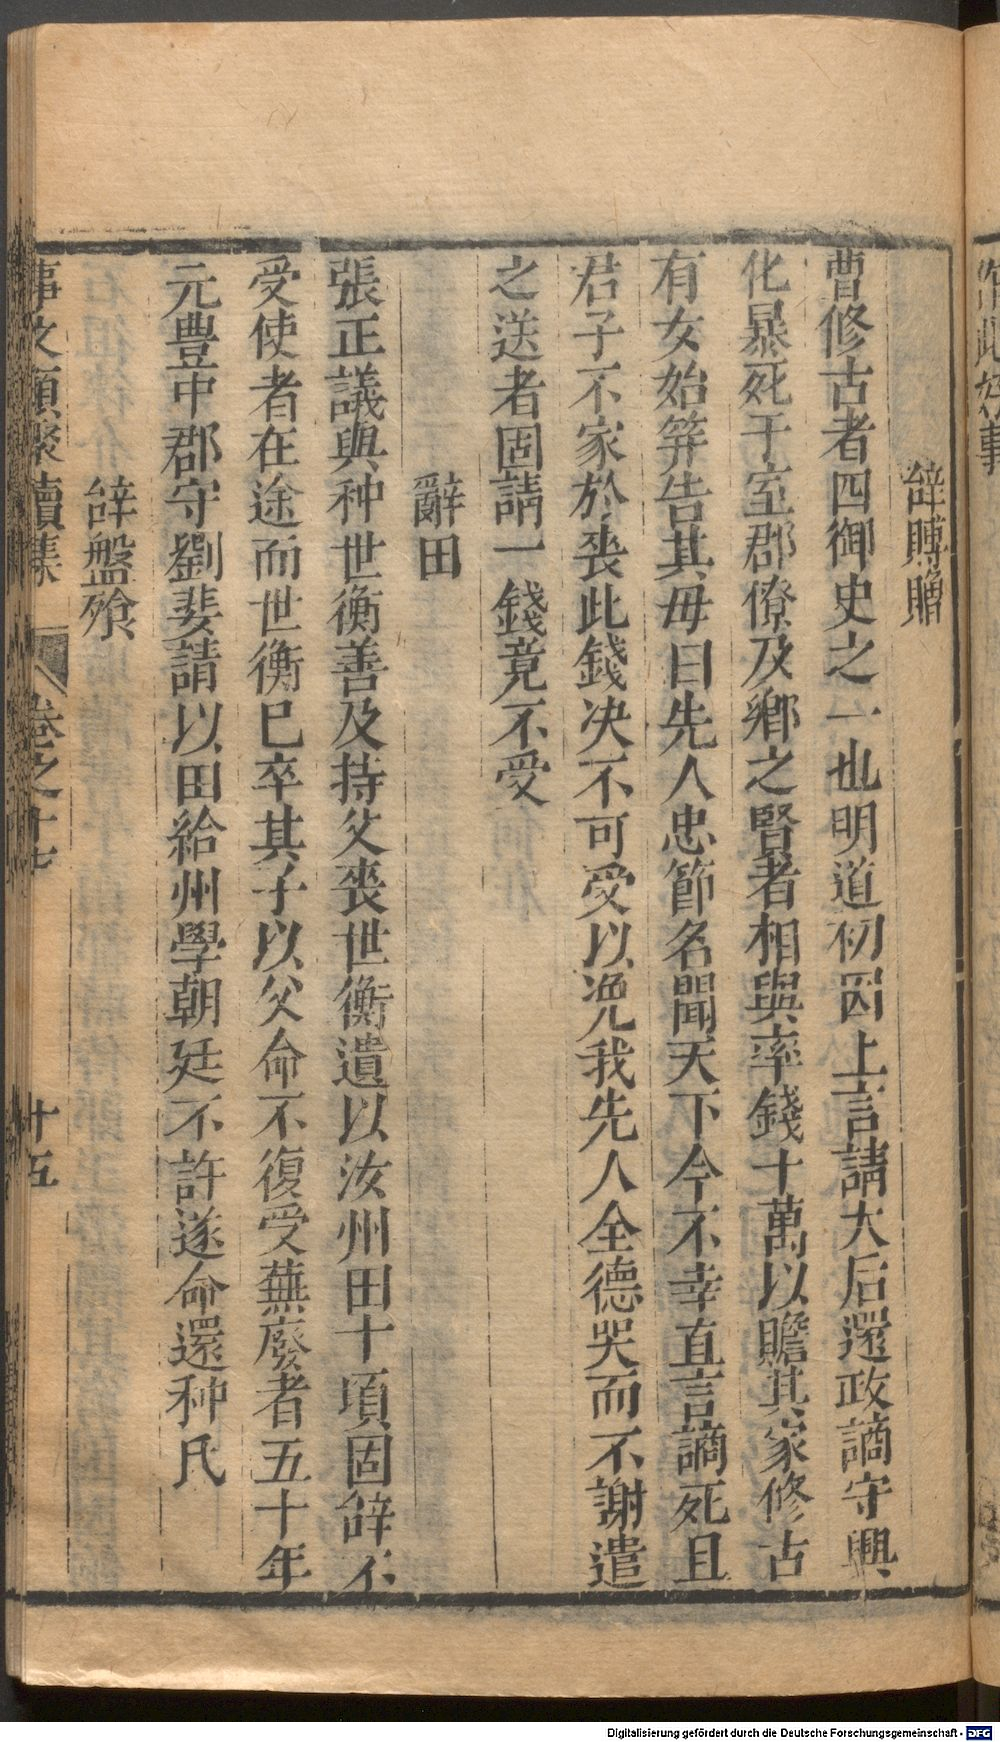 辝賻贈
曹修古者四御史之一也明道初因上言請太后還政謫守興
化暴死于室郡僚及鄉之賢者相與率錢十萬以贍其家修古
有女始筓告其毋曰先人忠節名聞天下今不幸直言謫死且
君子不家於喪此錢決不可受以浼我先人全德哭而不謝遣
之送者固請一錢竟不受
辭田
張正議與种世衡善及持父喪世衡遺以汝州田十頃固辝不
受使者在途而世衡已卒其子以父命不復受蕪廢者五十年
元豊中郡守劉斐請以田給州學朝廷不許遂命還种氏
辝盤飱
事文類聚續集 卷之十七 十五
Digitalisierung gefördert durch die Deutsche Forschungsgemeinschaft - DFG